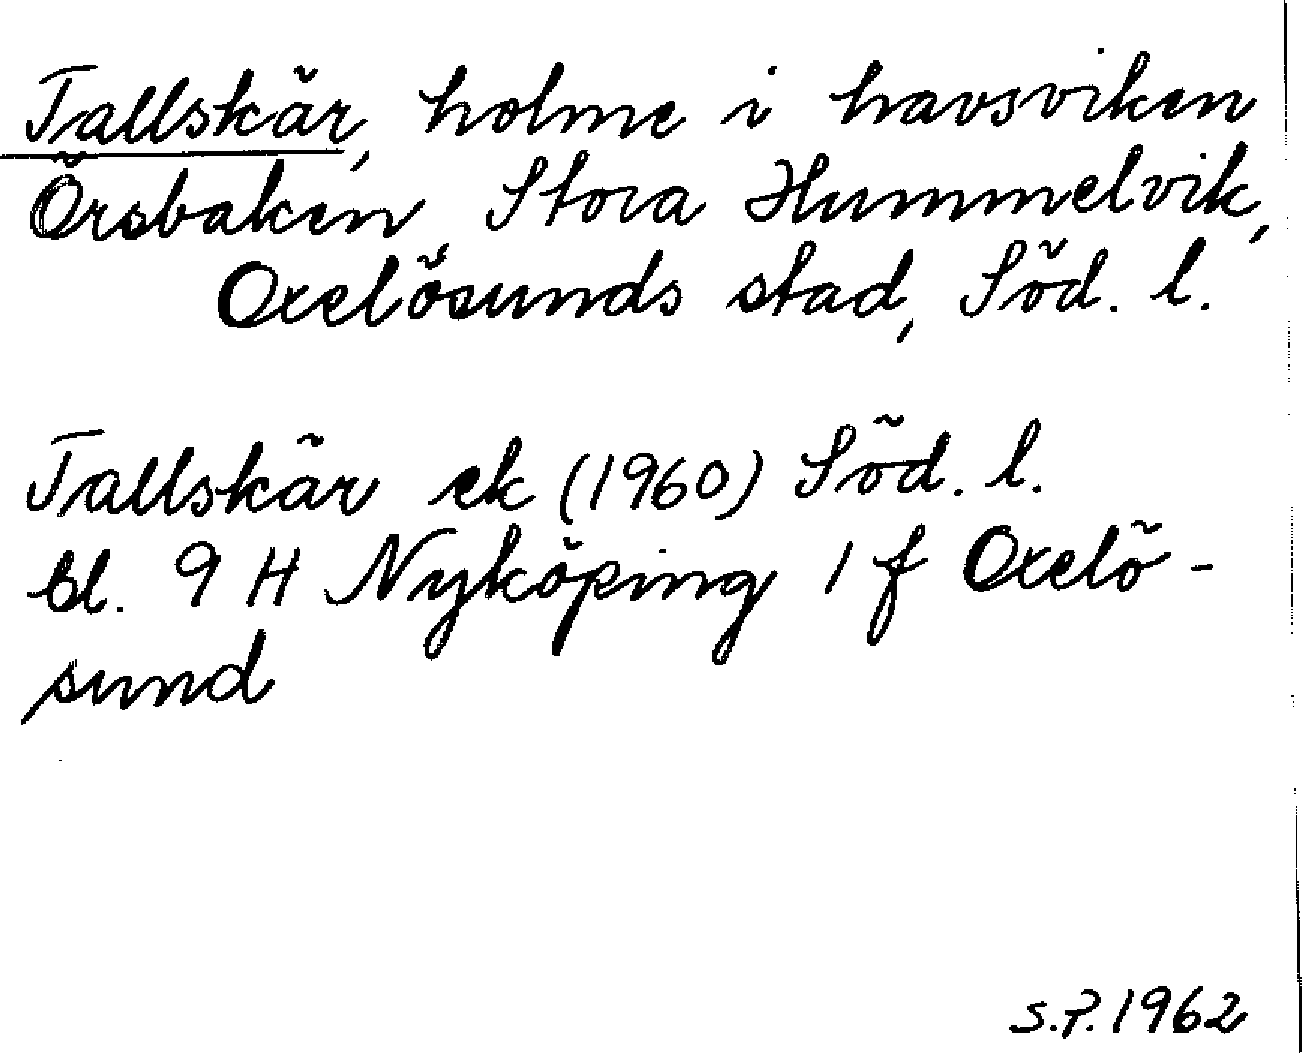 Tallskär, holme i havsviken
Örsbaken, Stora Hummelvik,
Oxelösunds stad, Söd. l.
Tallskär ek (1960) Söd. l.
bl. 9 H Nyköping 1 f Oxelö-
sund
S.P. 1962